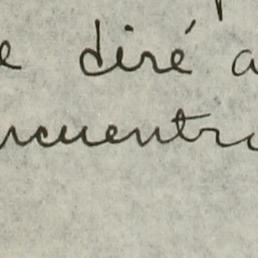 e diré a
ncuentro